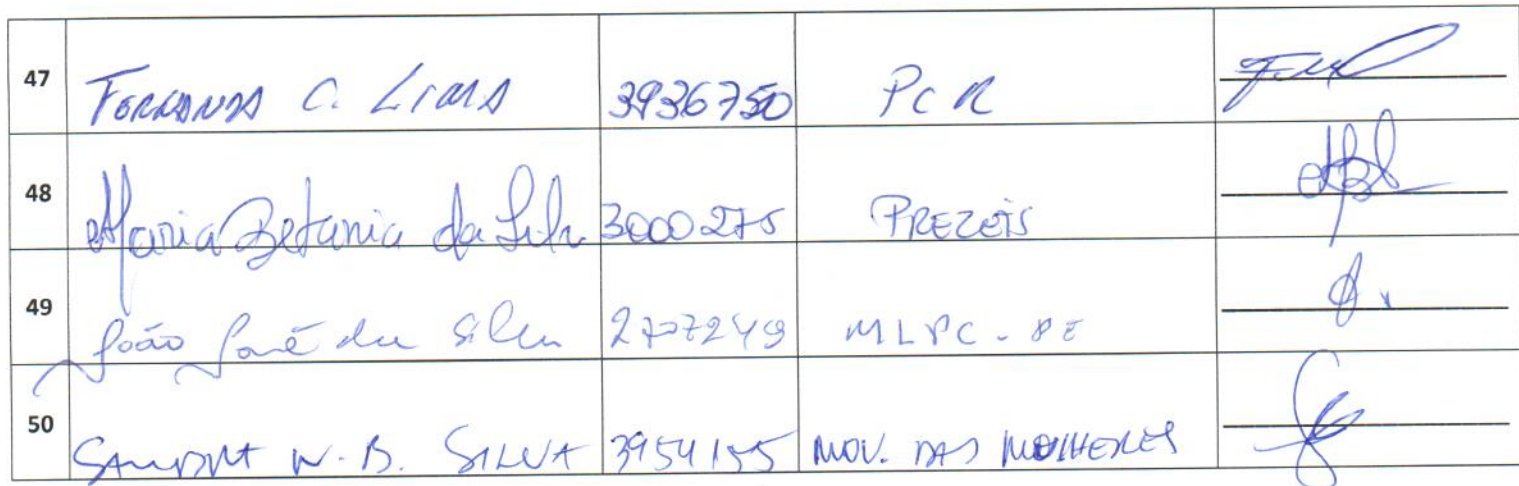 47 FERNANDA C. LIMA 3936750 PCR
48 Maria Betania da Silva 3000275 PREZEIS
49 João José da Silva 2707249 MLPC-PE
50 SANDRA N. B. SILVA 3954155 MOV. DAS MULHERES